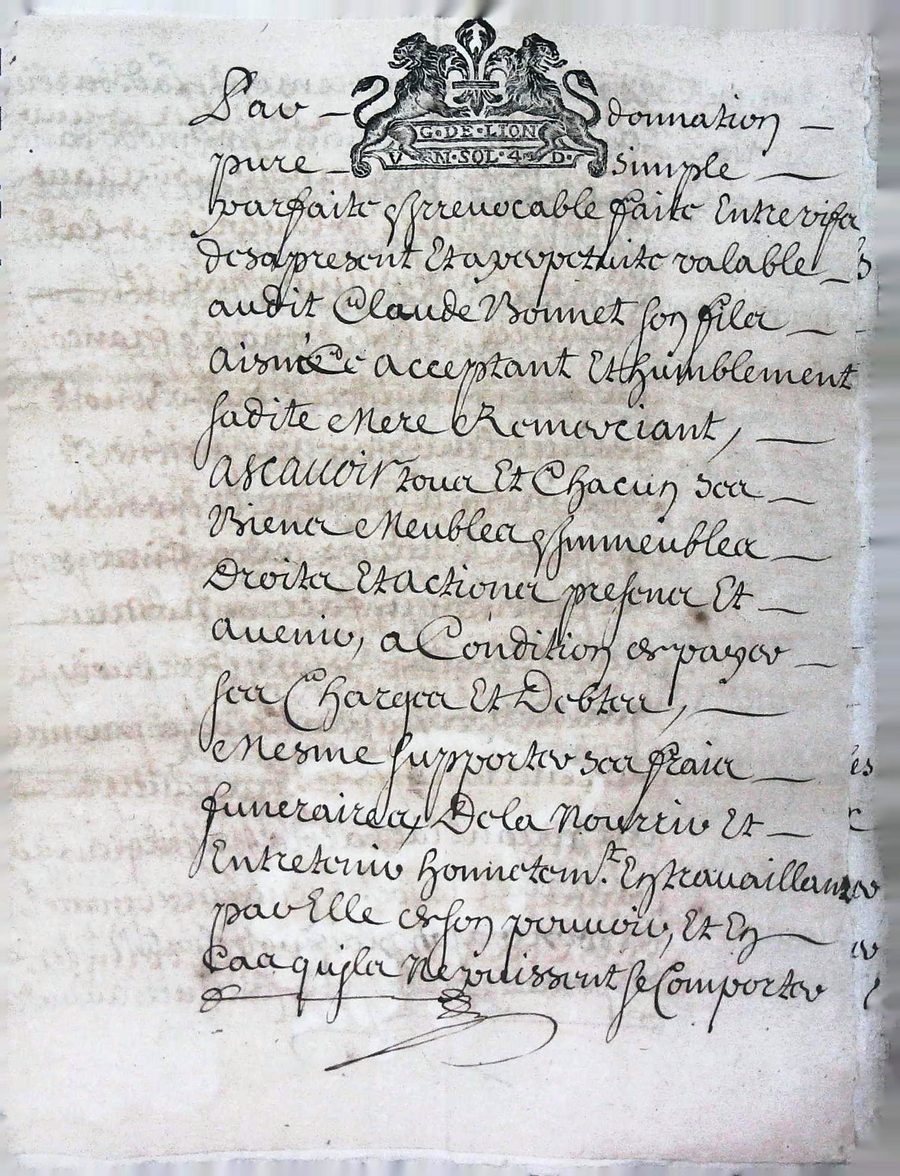 Par donnation
G·DE·LION
VN·SOL·4·D·
pure simple
parfaite & Irrevocable faite Entre vifs
des a present Et a perpetuite valable
audit Claude Bonnet son fils
aisné Ce acceptant Et humblement
sadite Mere Remerciant,
ascavoir tous Et Chacun ses
Biens Meubles & Immeubles
Droits Et actions presens Et
avenir, a Condition de payer
ses Charges Et Debtes,
Mesme supporter ses frais
funeraires, De la Nourrir Et
Entretenir honnetemt. En travaillant
par Elle de son pouvoir, Et En
Cas quils Ne puissent se Comporter